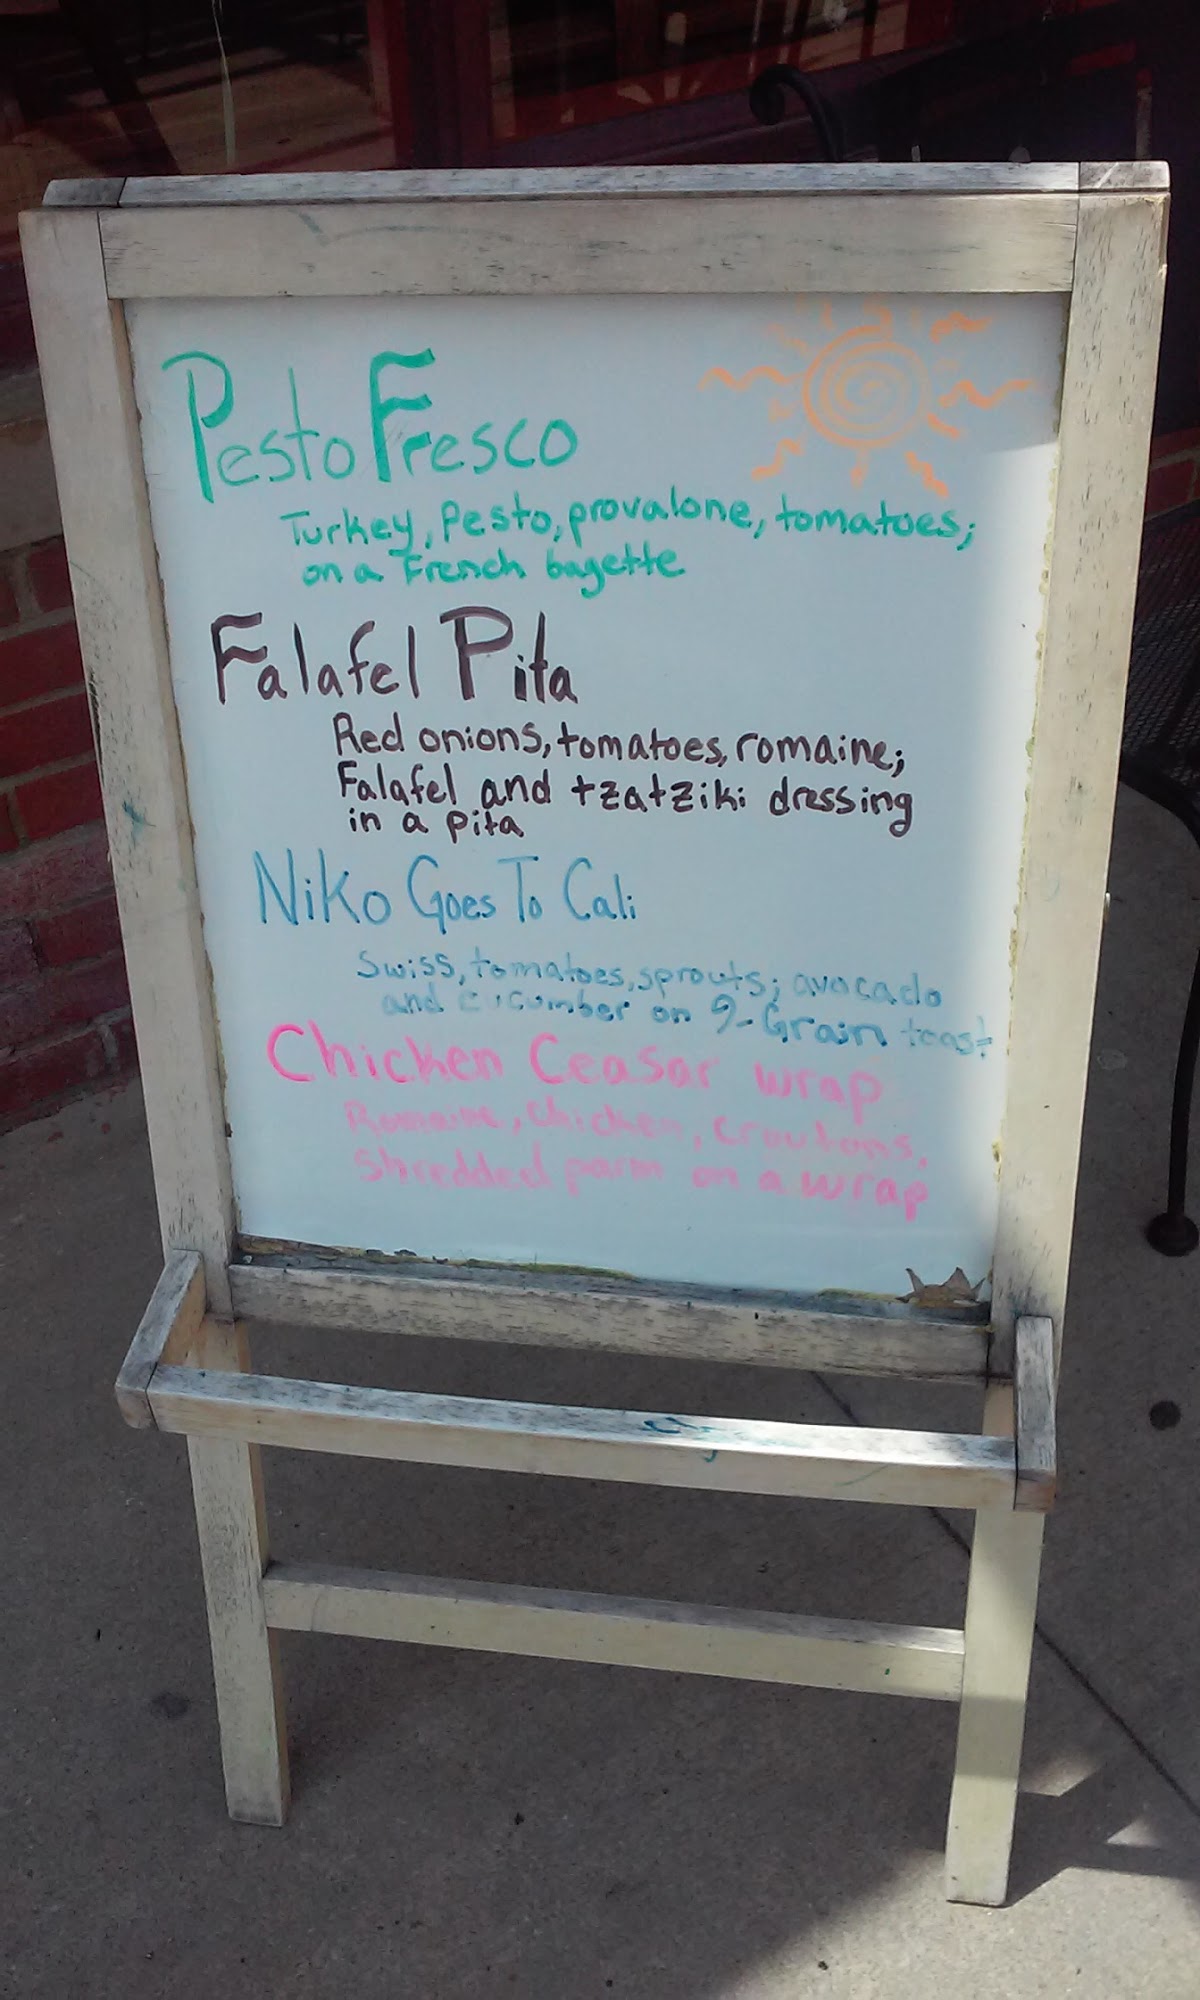 Pesto Fresco
Turkey, Pesto, provalone, tomatoes;
on a French bagette
Falafel Pita
Red onions, tomatoes, romaine;
Falafel and tzatziki dressing
in a pita
Niko Goes To Cali
Swiss, tomatoes, sprouts; avocado
and cucumber on 9-Grain toast
Chicken Ceasar wrap
Romaine, chicken, croutons,
shredded parm on a wrap